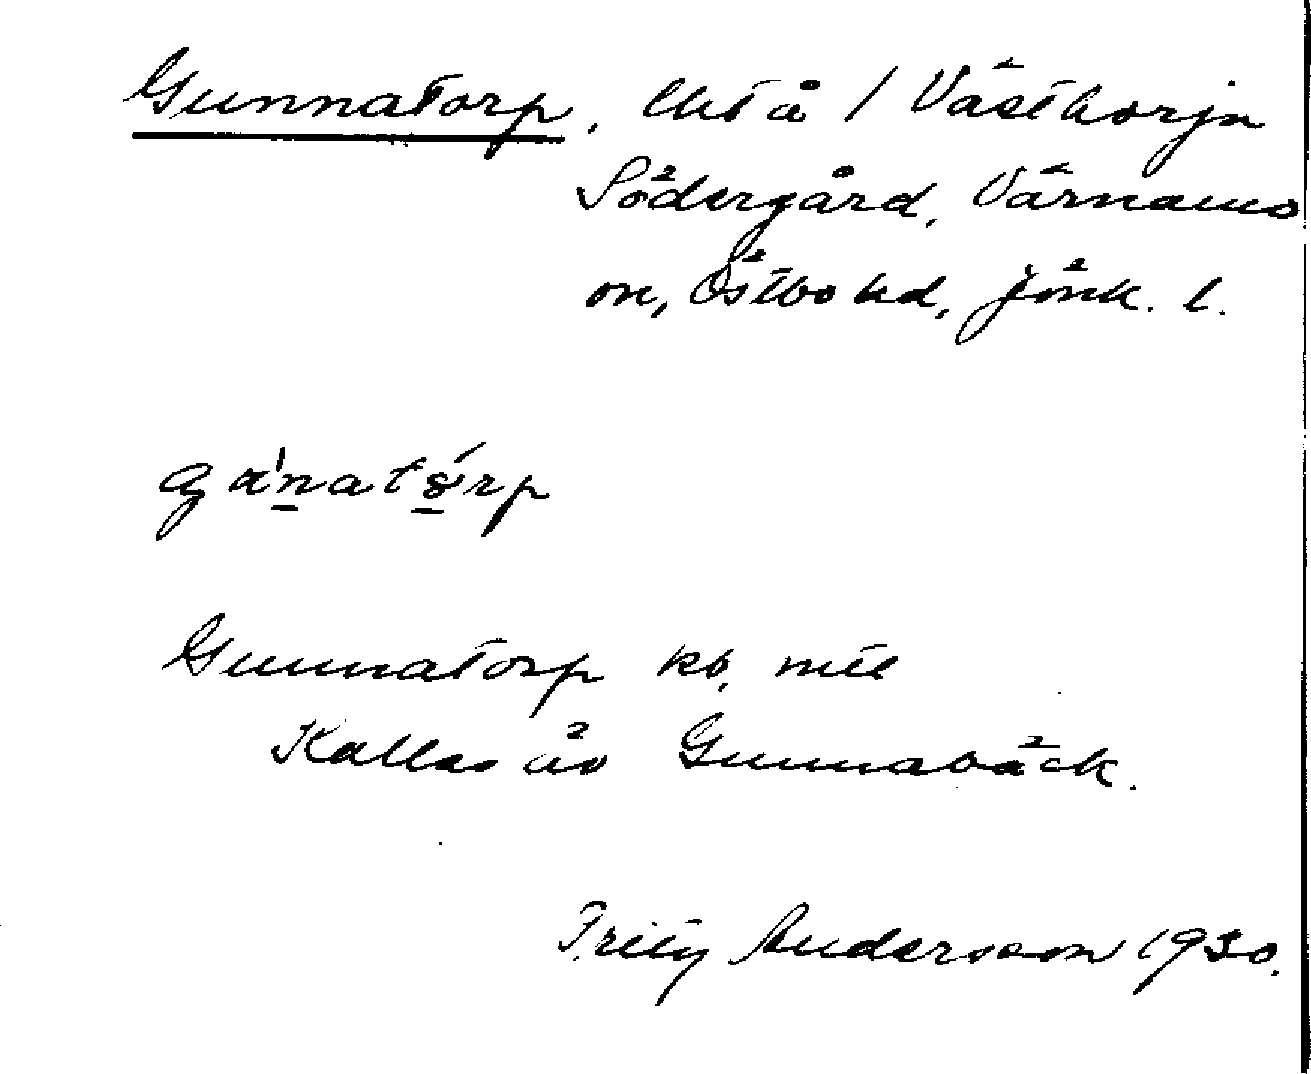 Gunnatorp, lht å 1 Västhorja
Södergård, Värnamo
sn, Östbo hd, Jönk. l.
Gunnatorp kb, mtl
Kallas äv Gunnabäck.
Fritz Andersson 1930.